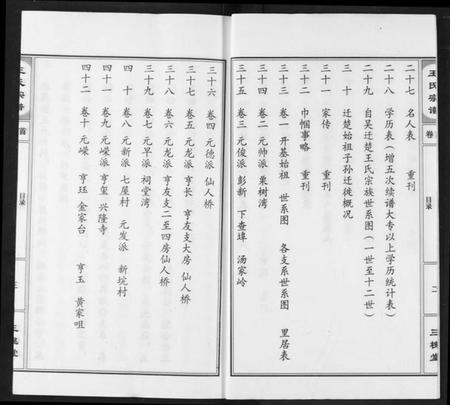 王氏宗譜
卷首
目录
二
三槐堂
二十七 名人表 重刊
二十八 学历表（增五次续谱大专以上学历统计表）
二十九 自吴迁楚王氏宗族世系图（一世至十二世）
三十 迁楚始祖子孙迁徙概况
三十一 家传 重刊
三十二 巾帼事略 重刊
三十三 卷一 开基始祖 世系图 各支系世系图 里居表
三十四 卷二 元帅派 栗树湾
三十五 卷三 元俊派 彭新 下查埠 汤家岭
三十六 卷四 元德派 仙人桥
三十七 卷五 元龙派 亨长 亨友支大房 仙人桥
三十八 卷六 元龙派 亨友支二至四房仙人桥
三十九 卷七 元早派 祠堂湾
四十 卷八 元新派 七屋村 元发派 新垸村
四十一 卷九 元嵘派 亨玺 兴隆寺
四十二 卷十 元嵘 亨珏 金家台 亨玉 黄家咀
王氏宗譜
首
目录
三
三槐堂